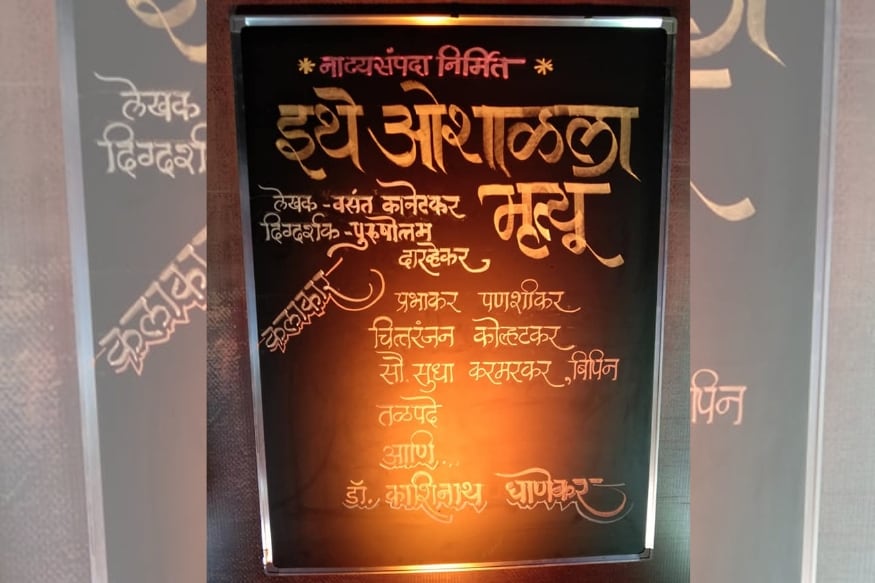 * नाट्यसंपदा निर्मित *
इथे ओशाळला
मृत्यू
लेखक - वसंत कानेटकर
दिग्दर्शक - पुरुषोत्तम
दारव्हेकर
कलाकार
प्रभाकर पणशीकर
चित्तरंजन कोल्हटकर
सौ. सुधा करमरकर, बिपिन
तळपदे
आणि...
डॉ. काशिनाथ घाणेकर